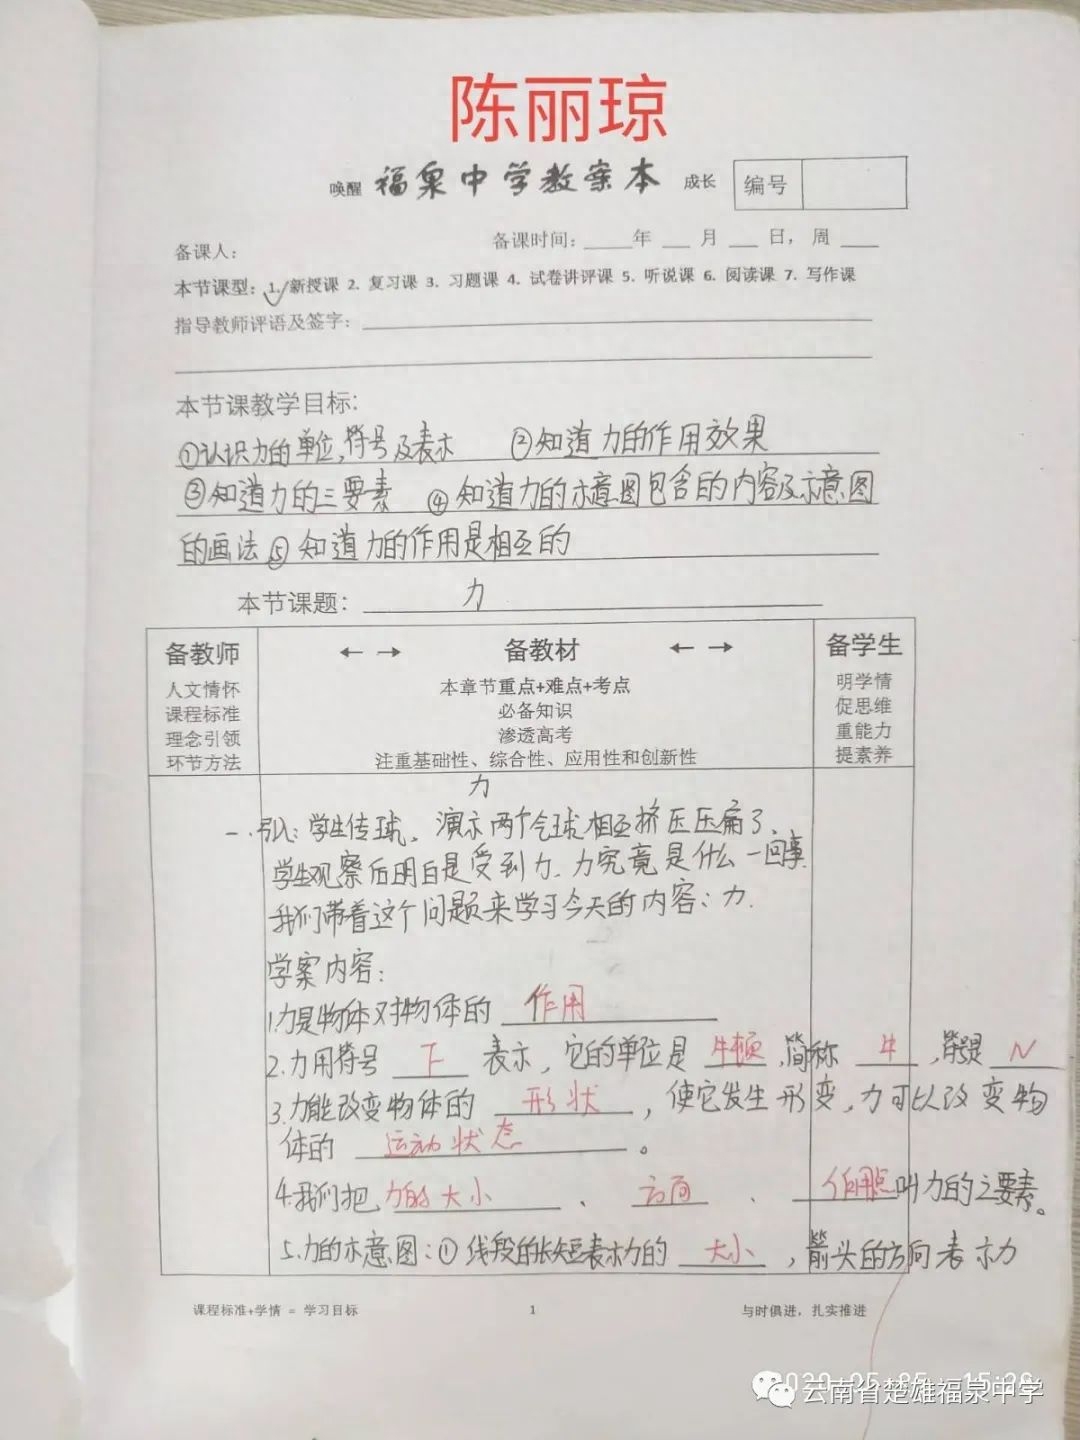 陈丽琼
唤醒 福泉中学教案本 成长 编号
备课人: 备课时间: 年 月 日, 周
本节课型: 1. 新授课 2. 复习课 3. 习题课 4. 试卷讲评课 5. 听说课 6. 阅读课 7. 写作课
指导教师评语及签字:
本节课教学目标:
①认识力的单位,符号及表示 ②知道力的作用效果
③知道力的三要素 ④知道力的示意图包含的内容及示意图
的画法⑤知道力的作用是相互的
本节课题: 力
备教师 ← → 备教材 ← → 备学生
人文情怀 本章节重点+难点+考点 明学情
课程标准 必备知识 促思维
理念引领 渗透高考 重能力
环节方法 注重基础性、综合性、应用性和创新性 提素养
力
一.引入: 学生传球。演示两个气球相互挤压压扁了.
学生观察后明白是受到力.力究竟是什么一回事
我们带着这个问题来学习今天的内容: 力.
学案内容:
1.力是物体对物体的 作用
2.力用符号 F 表示, 它的单位是 牛顿,简称 牛 ,符号是 N
3.力能改变物体的 形状 , 使它发生形变,力可以改变物
体的 运动状态 。
4.我们把 力的大小 、 方向 、 作用点 叫力的三要素。
5.力的示意图:①线段的长短表示力的 大小 ,箭头的方向表示力
课程标准+学情 = 学习目标 1 与时俱进,扎实推进
云南省楚雄福泉中学